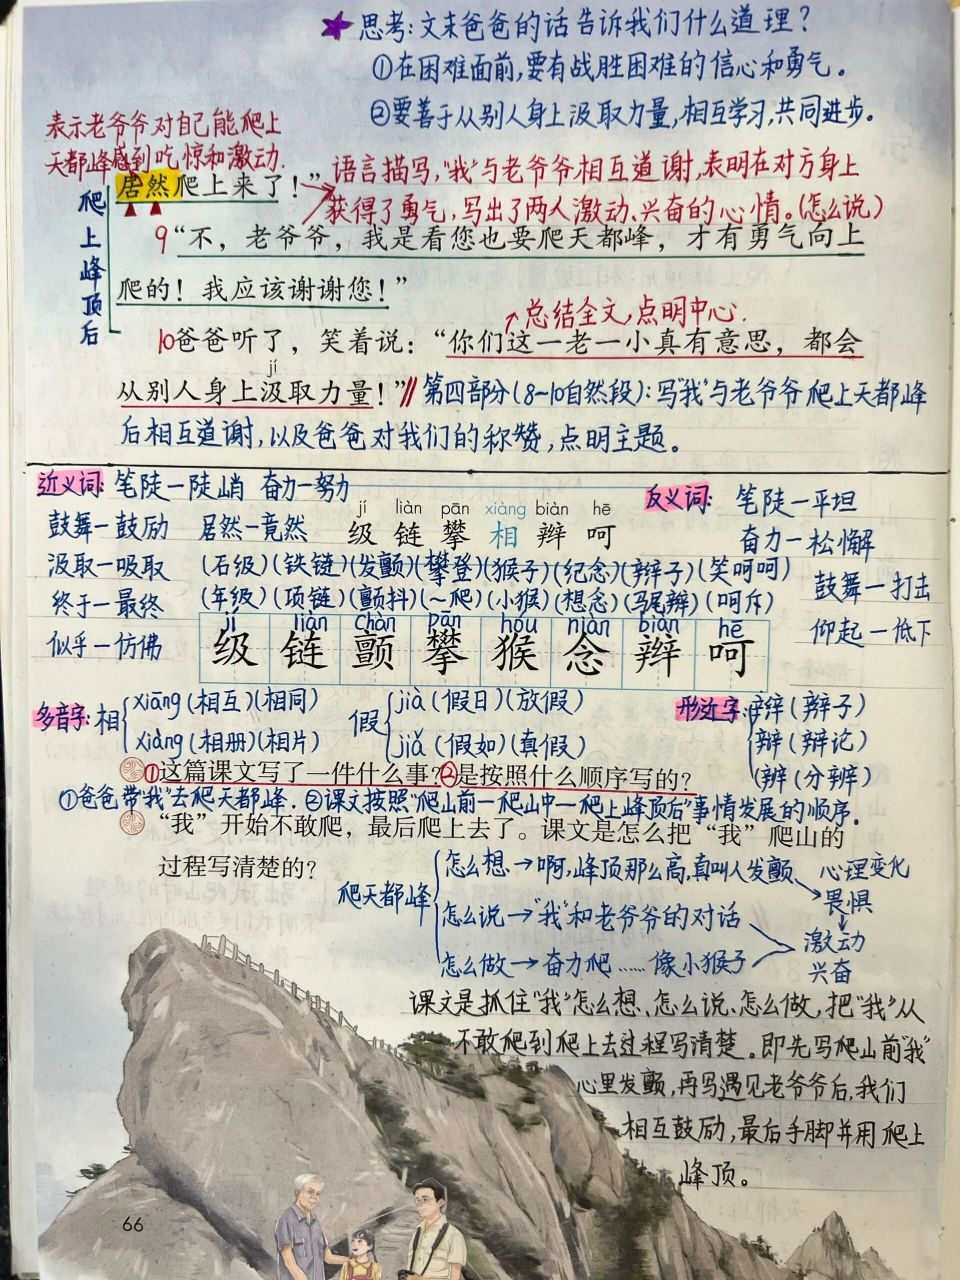 ★思考:文末爸爸的话告诉我们什么道理?
①在困难面前,要有战胜困难的信心和勇气。
②要善于从别人身上汲取力量,相互学习,共同进步。
表示老爷爷对自己能爬上
天都峰感到吃惊和激动.
居然爬上来了!”
语言描写,“我”与老爷爷相互道谢,表明在对方身上
获得了勇气,写出了两人激动、兴奋的心情。(怎么说)
爬上峰顶后
9“不,老爷爷,我是看您也要爬天都峰,才有勇气向上
爬的!我应该谢谢您!”
总结全文,点明中心.
10爸爸听了,笑着说:“你们这一老一小真有意思,都会
jí
从别人身上汲取力量!”∥第四部分(8~10自然段):写“我”与老爷爷爬上天都峰
后相互道谢,以及爸爸对我们的称赞,点明主题。
近义词:笔陡—陡峭 奋力—努力
鼓舞—鼓励 居然—竟然
汲取—吸取
终于—最终
似乎—仿佛
jí liàn pān xiàng biàn hē
级 链 攀 相 辫 呵
反义词:笔陡—平坦
奋力—松懈
鼓舞—打击
仰起—低下
(石级)(铁链)(发颤)(攀登)(猴子)(纪念)(辫子)(笑呵呵)
(年级)(项链)(颤抖)(~爬)(小猴)(想念)(马尾辫)(呵斥)
jí liàn chàn pān hóu niàn biàn hē
级 链 颤 攀 猴 念 辫 呵
多音字:相 xiāng(相互)(相同)
xiàng(相册)(相片)
假 jià(假日)(放假)
jiǎ(假如)(真假)
形近字:辫(辫子)
辩(辩论)
辨(分辨)
①这篇课文写了一件什么事?②是按照什么顺序写的?
①爸爸带“我”去爬天都峰.②课文按照“爬山前—爬山中—爬上峰顶后”事情发展的顺序.
“我”开始不敢爬,最后爬上去了。课文是怎么把“我”爬山的
过程写清楚的?
爬天都峰
怎么想→啊,峰顶那么高,真叫人发颤
怎么说→“我”和老爷爷的对话
怎么做→奋力爬……像小猴子
心理变化
畏惧
激动
兴奋
课文是抓住“我”怎么想、怎么说、怎么做,把“我”从
不敢爬到爬上去过程写清楚。即先写爬山前“我”
心里发颤,再写遇见老爷爷后,我们
相互鼓励,最后手脚并用爬上
峰顶。
66